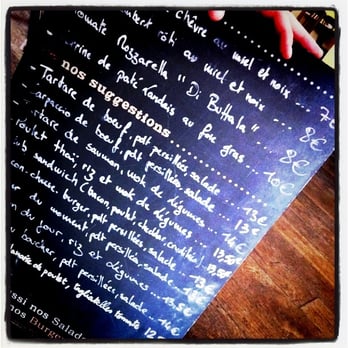 chèvre au miel et noix ... 7€
Camembert rôti au miel et noix ... 8€
Tomate Mozzarella "Di Buffala" ... 8€
Terrine de paté Landais au foie gras ... 10€
nos suggestions
- Tartare de boeuf, pdt persillées, salade ... 13€
- Carpaccio de boeuf, pdt persillées, salade ... 13€
Tartare de saumon, wok de légumes ... 14€
Poulet thaï, riz et wok de légumes
club sandwich (bacon, poulet, cheddar, crudités) 13,50€
cheese burger, pdt persillées, salade
du moment, pdt persillées, salade
du jour, riz et légumes
boucher, pdt persillées, salade ... 14€
de poulet, tagliatelles tomate 12
ssi nos Salad
nos Burge